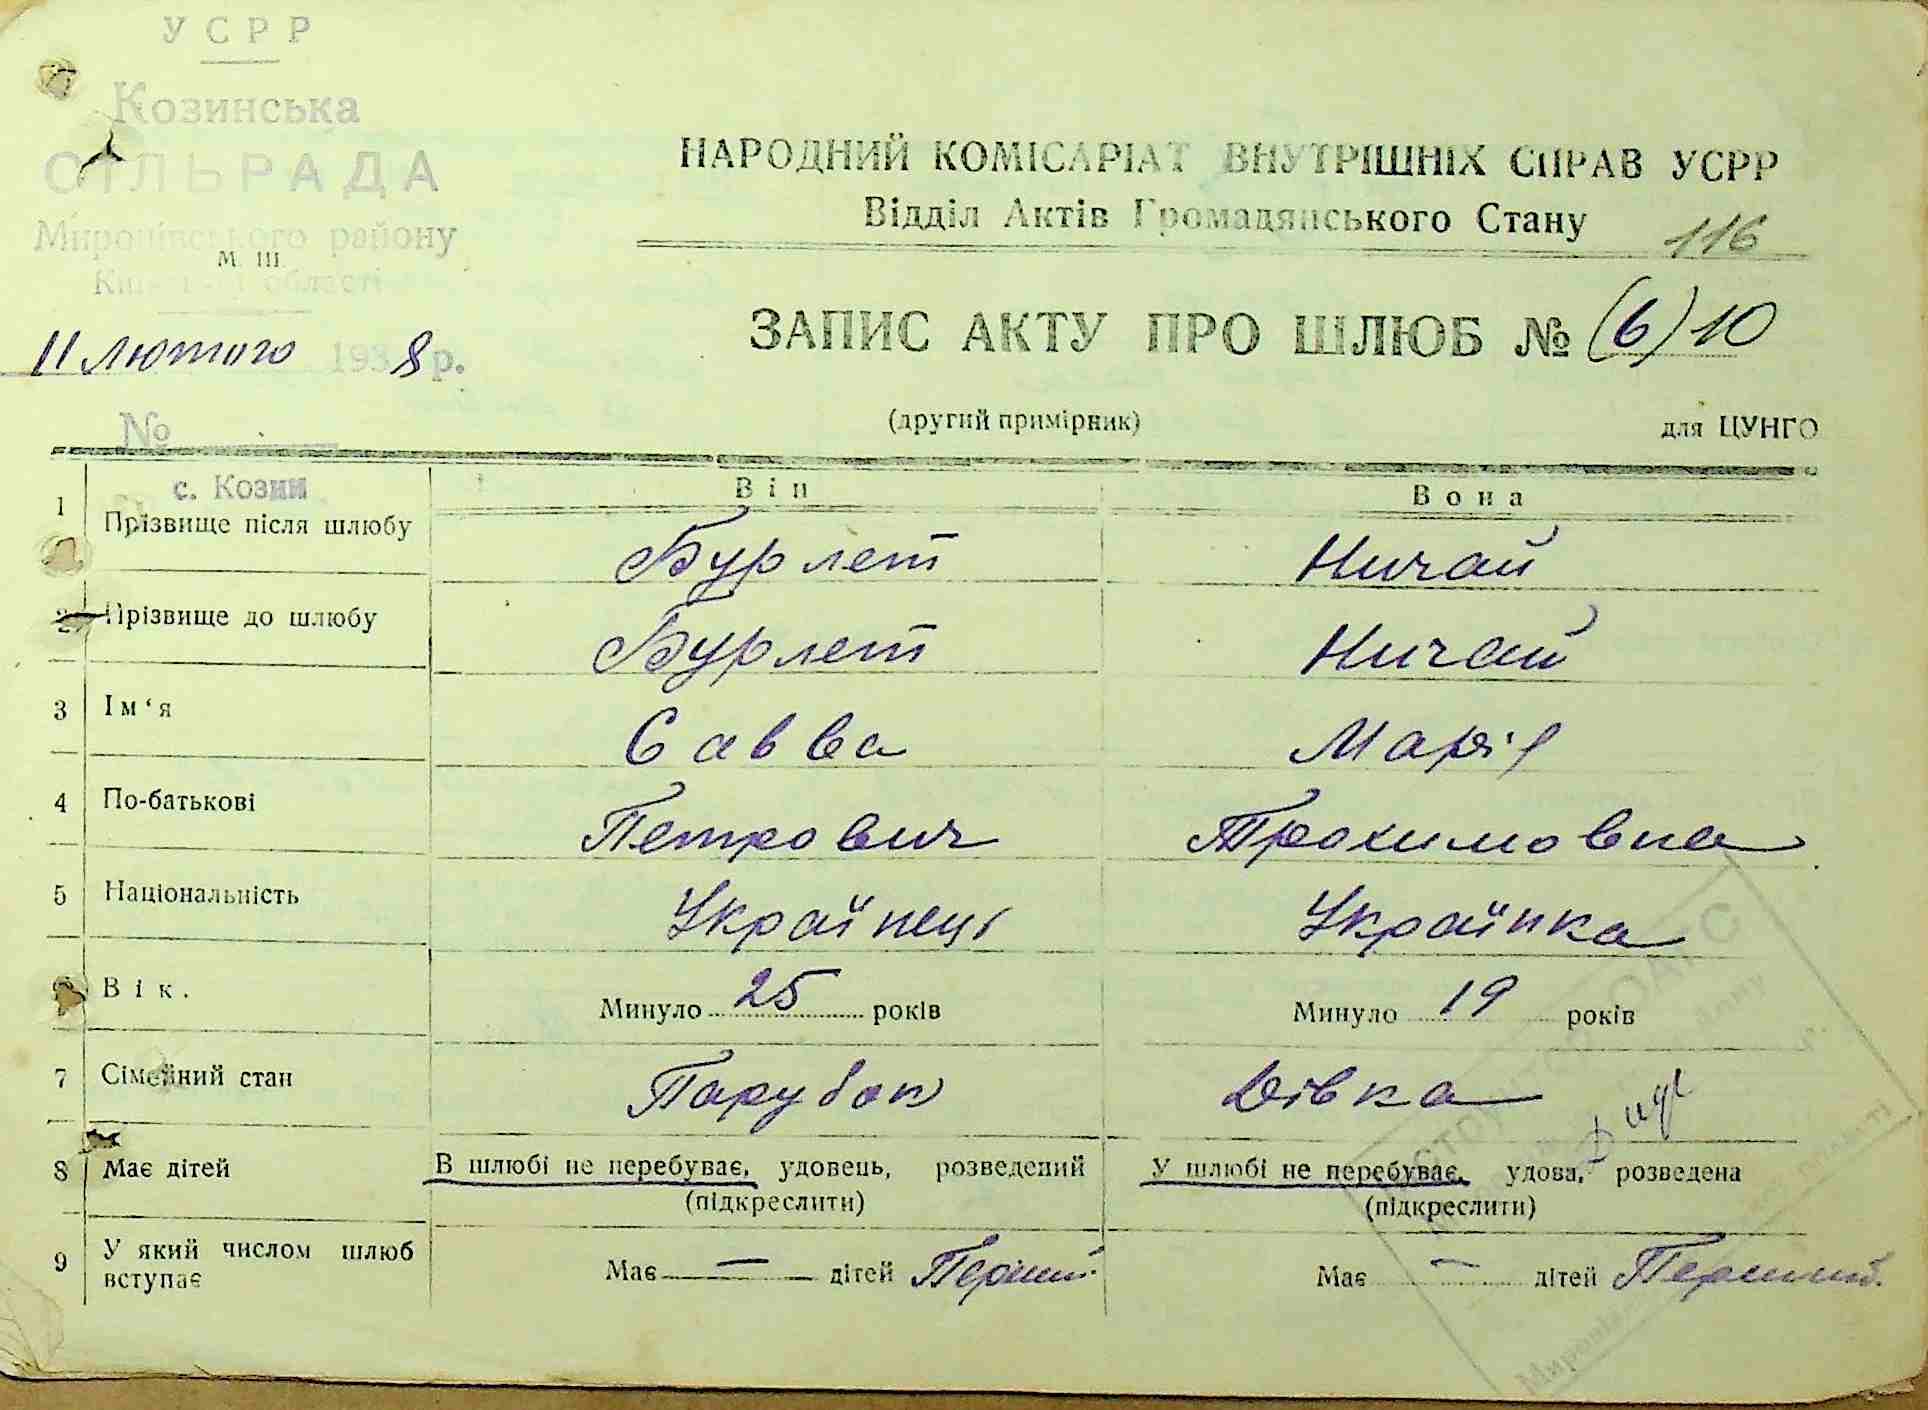 УСРР
Козинська
СІЛЬРАДА
Миронівського району
М. Ш.
Київської області
11 Лютого 1938 р.
№
НАРОДНИЙ КОМІСАРІАТ ВНУТРІШНІХ СПРАВ УСРР
Відділ Актів Громадянського Стану
116
ЗАПИС АКТУ ПРО ШЛЮБ № (6) 10
(другий примірник) для ЦУНГО
с. Козин
Він Вона
1 Прізвище після шлюбу Бурлет Ничай
2 Прізвище до шлюбу Бурлет Ничай
3 Ім‘я Савва Марія
4 По-батькові Петрович Трохимовна
5 Національність Українець Українка
6 Вік. Минуло 25 років Минуло 19 років
7 Сімейний стан Парубок Дівка
8 Має дітей В шлюбі не перебуває, удовець, розведений У шлюбі не перебуває, удова, розведена
(підкреслити) (підкреслити)
9 У який числом шлюб вступає Має — дітей Перший. Має — дітей Перший.